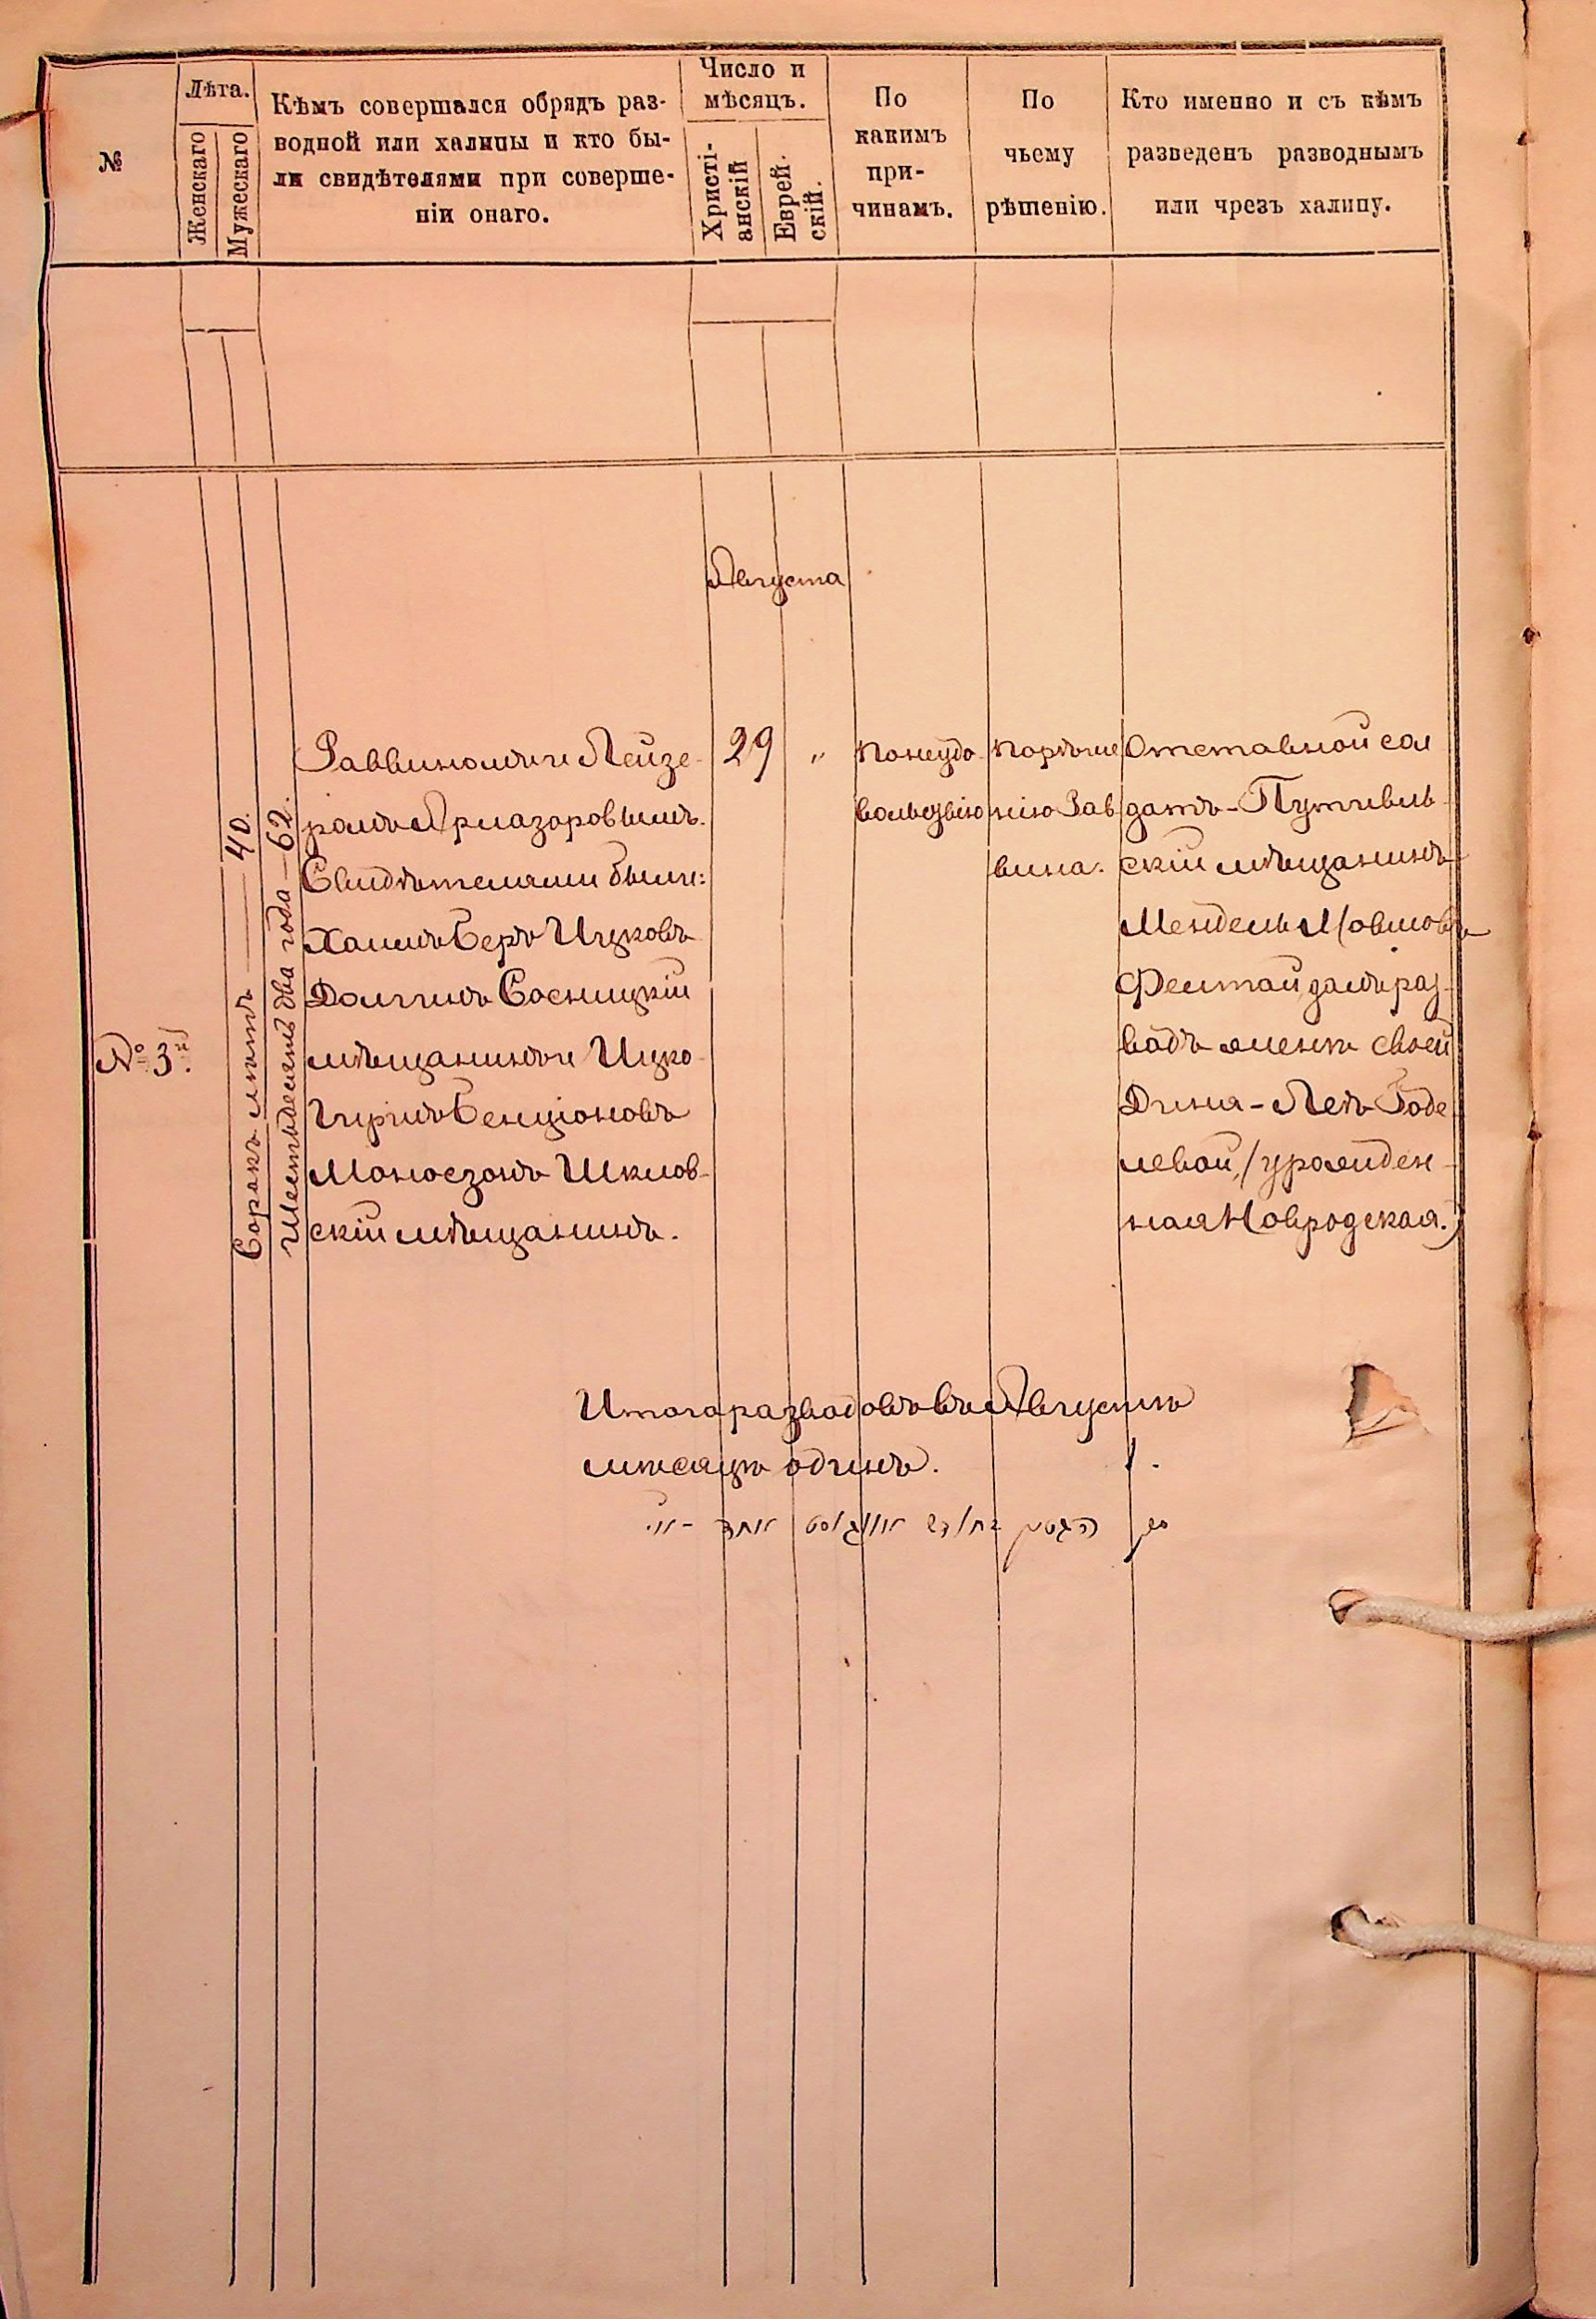 №
Лѣта.
Женскаго
Мужескаго
Кѣмъ совершался обрядъ раз-
водной или халицы и кто бы-
ли свидѣтелями при соверше-
ніи онаго.
Число и
мѣсяцъ.
Христі-
анскій
Еврей-
скій.
По
какимъ
при-
чинамъ.
По
чьему
рѣшенію.
Кто именно и съ кѣмъ
разведенъ разводнымъ
или чрезъ халицу.
Августа
№ 3й.
Сорокъ лѣтъ — 40.
Шестьдесятъ два года — 62.
Раввиномъ и Лейзе-
ромъ Армазоровымъ.
Свидѣтелями были:
Хаимъ Беръ Ицковъ
Долгинъ Сосницкій
мѣщанинъ и Ицко-
Гиршъ Бенціоновъ
Моносзонъ Шклов-
скій мѣщанинъ.
29 "
По неудо-
вольствію
По рѣше
нію Рав
вина.
Отставной сол
датъ-Путивль-
скій мѣщанинъ
Мендель Мовшовъ
Фентай, далъ раз-
водъ женѣ своей
Дина-Леѣ Годе
левой, /урожден-
ная Новродская.)
Итого разводовъ въ Августѣ
мѣсяцѣ одинъ. 1.
בחודש אויגוסט אחד